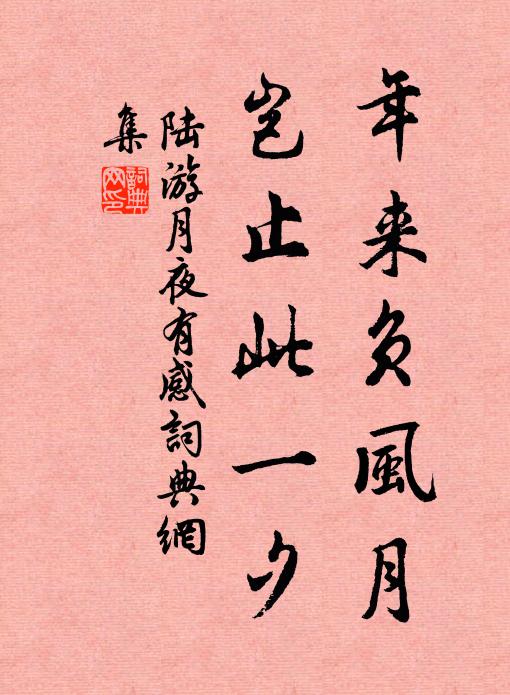 年来负風月
岂止此一夕
陆游月夜有感詞典網
集
詞典网印